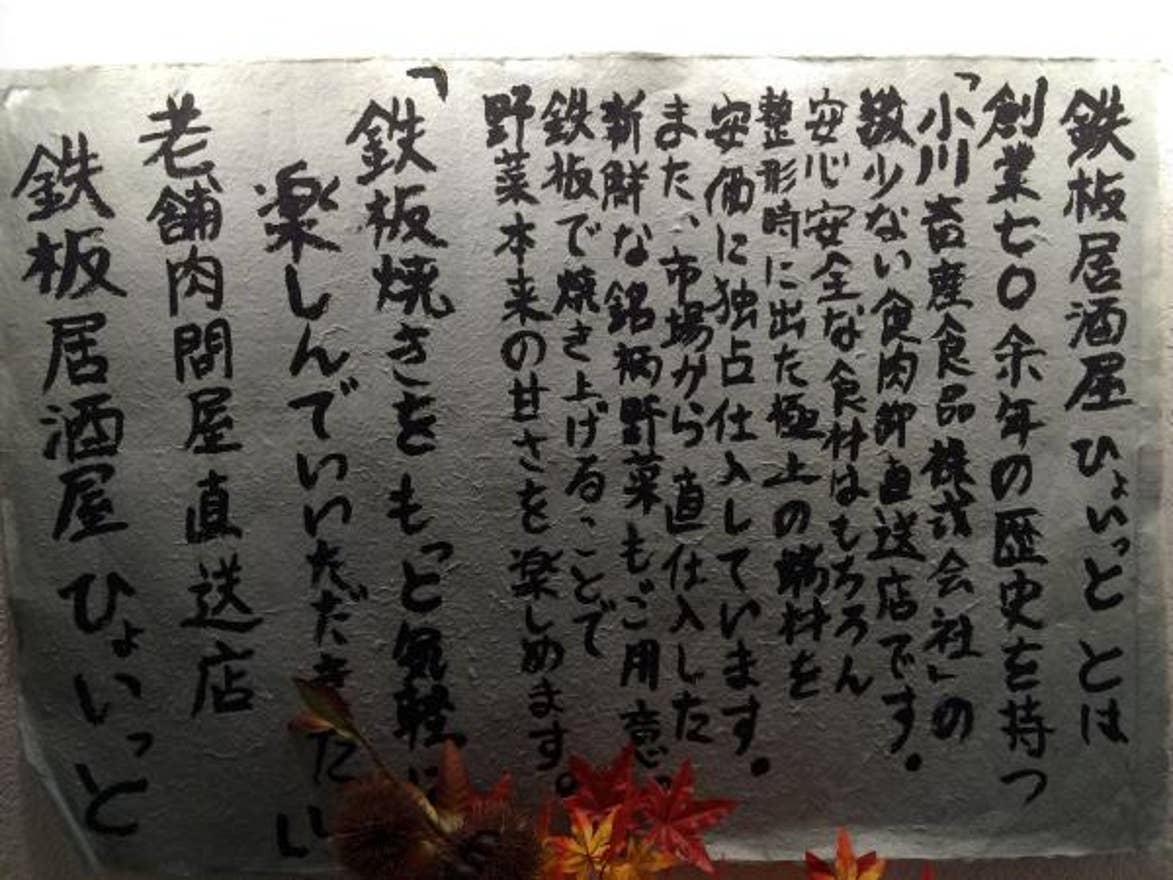 鉄板居酒屋ひょいっととは
創業七〇余年の歴史を持つ
「小川畜産食品株式会社」の
数少ない食肉卸直送店です。
安心安全な食材はもちろん
整形時に出た極上の端材を
安価に独占仕入しています。
また、市場から直仕入した
新鮮な銘柄野菜もご用意。
鉄板で焼き上げることで
野菜本来の甘さを楽しめます。
「鉄板焼きをもっと気軽に
楽しんでいいただきたい
老舗肉問屋直送店
鉄板居酒屋ひょいっと